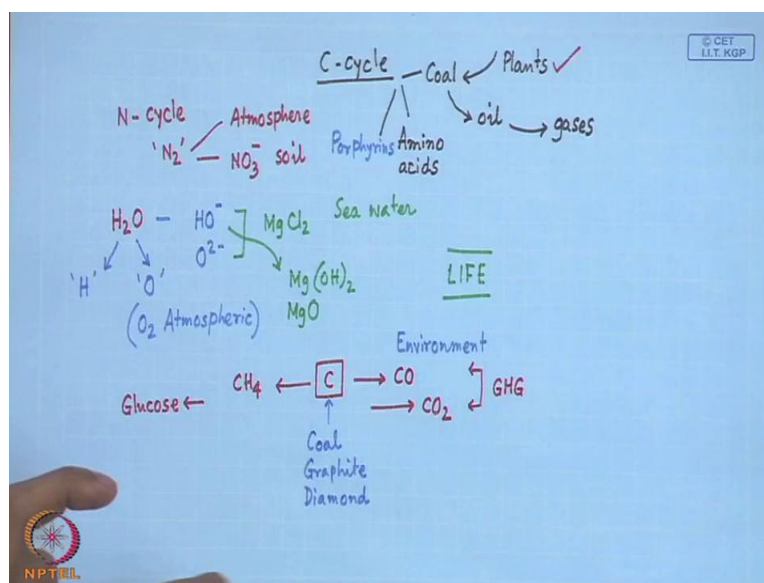 © CET
I.I.T. KGP
C-cycle – Coal ← Plants ✓
→ oil → gases
Porphyrins Amino acids
N-cycle Atmosphere
'N2' – NO₃⁻ soil
H₂O – HO⁻ MgCl₂ Sea water
O²⁻
'H' 'O' Mg(OH)₂
MgO
(O₂ Atmospheric)
LIFE
Environment
Glucose ← CH₄ ← C → CO
→ CO₂ GHG
Coal
Graphite
Diamond
NPTEL